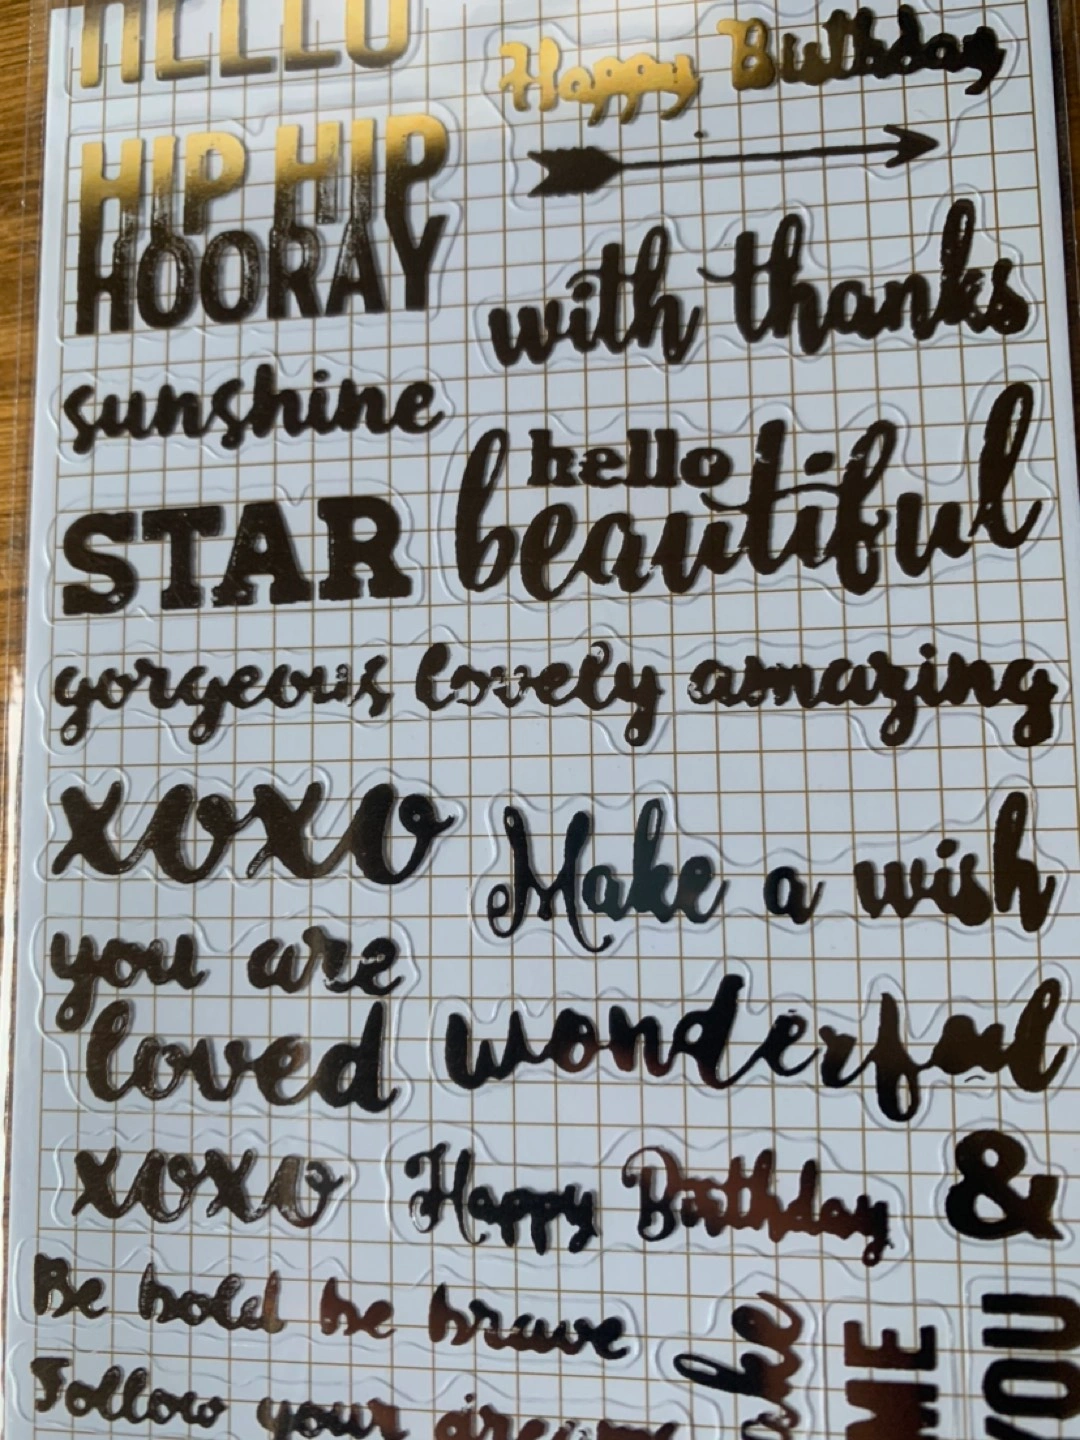 HELLO
Happy Birthday
HIP HIP
HOORAY
with thanks
sunshine
hello
beautiful
STAR
gorgeous lovely amazing
xoxo
Make a wish
you are
loved
wonderful
xoxo
Happy Birthday
&
Be bold be brave
Follow your dreams
ME
YOU